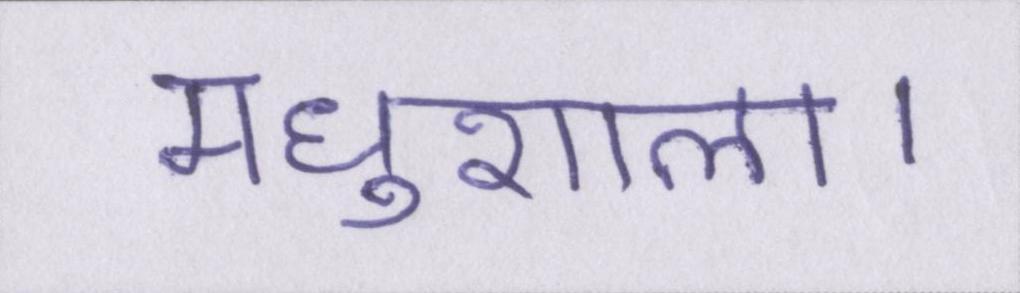 मधुशाला।